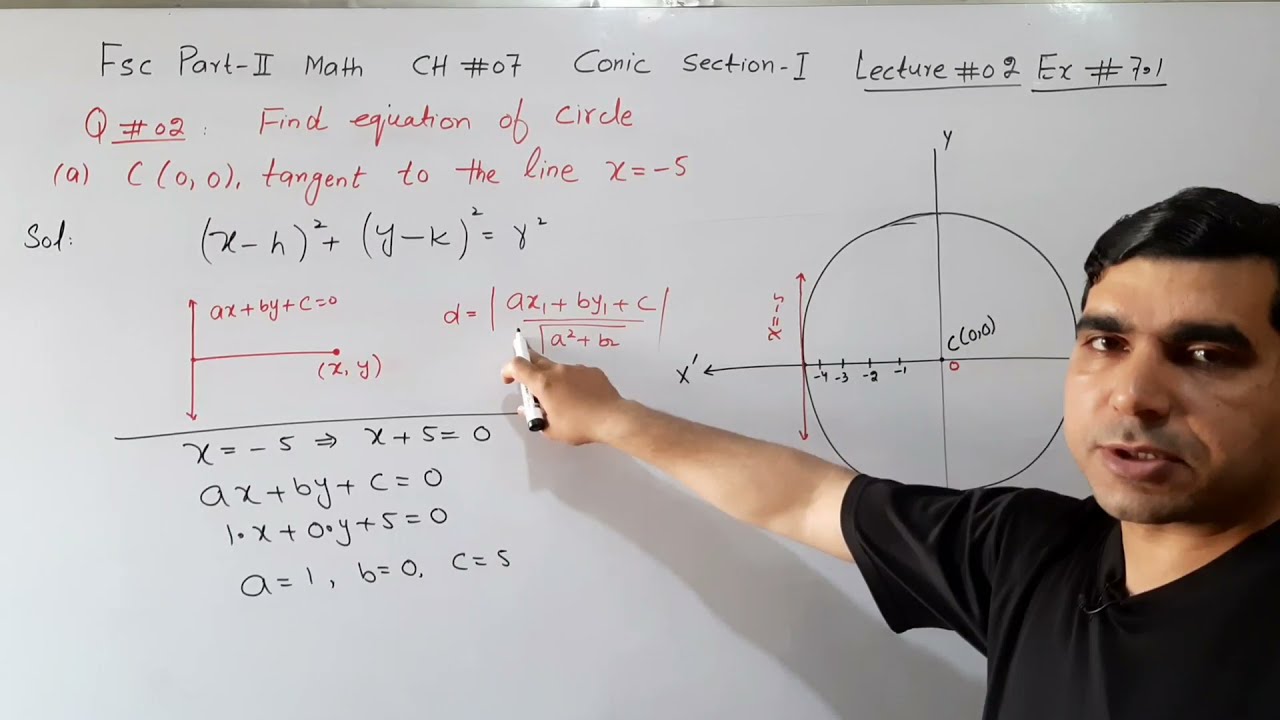 Fsc Part-II Math CH #07 Conic Section-I Lecture #02 Ex #7.1
Q #02: Find equation of circle
(a) C(0,0), tangent to the line x=-5
Sol: (x-h)²+(y-k)²=r²
ax+by+c=0
(x, y)
d=|ax₁+by₁+c/√a²+b2|
x=-5 ⇒ x+5=0
ax+by+c=0
1·x+0·y+5=0
a=1, b=0, c=5
Y
x=-5
C(0,0)
X' -4 -3 -2 -1 0